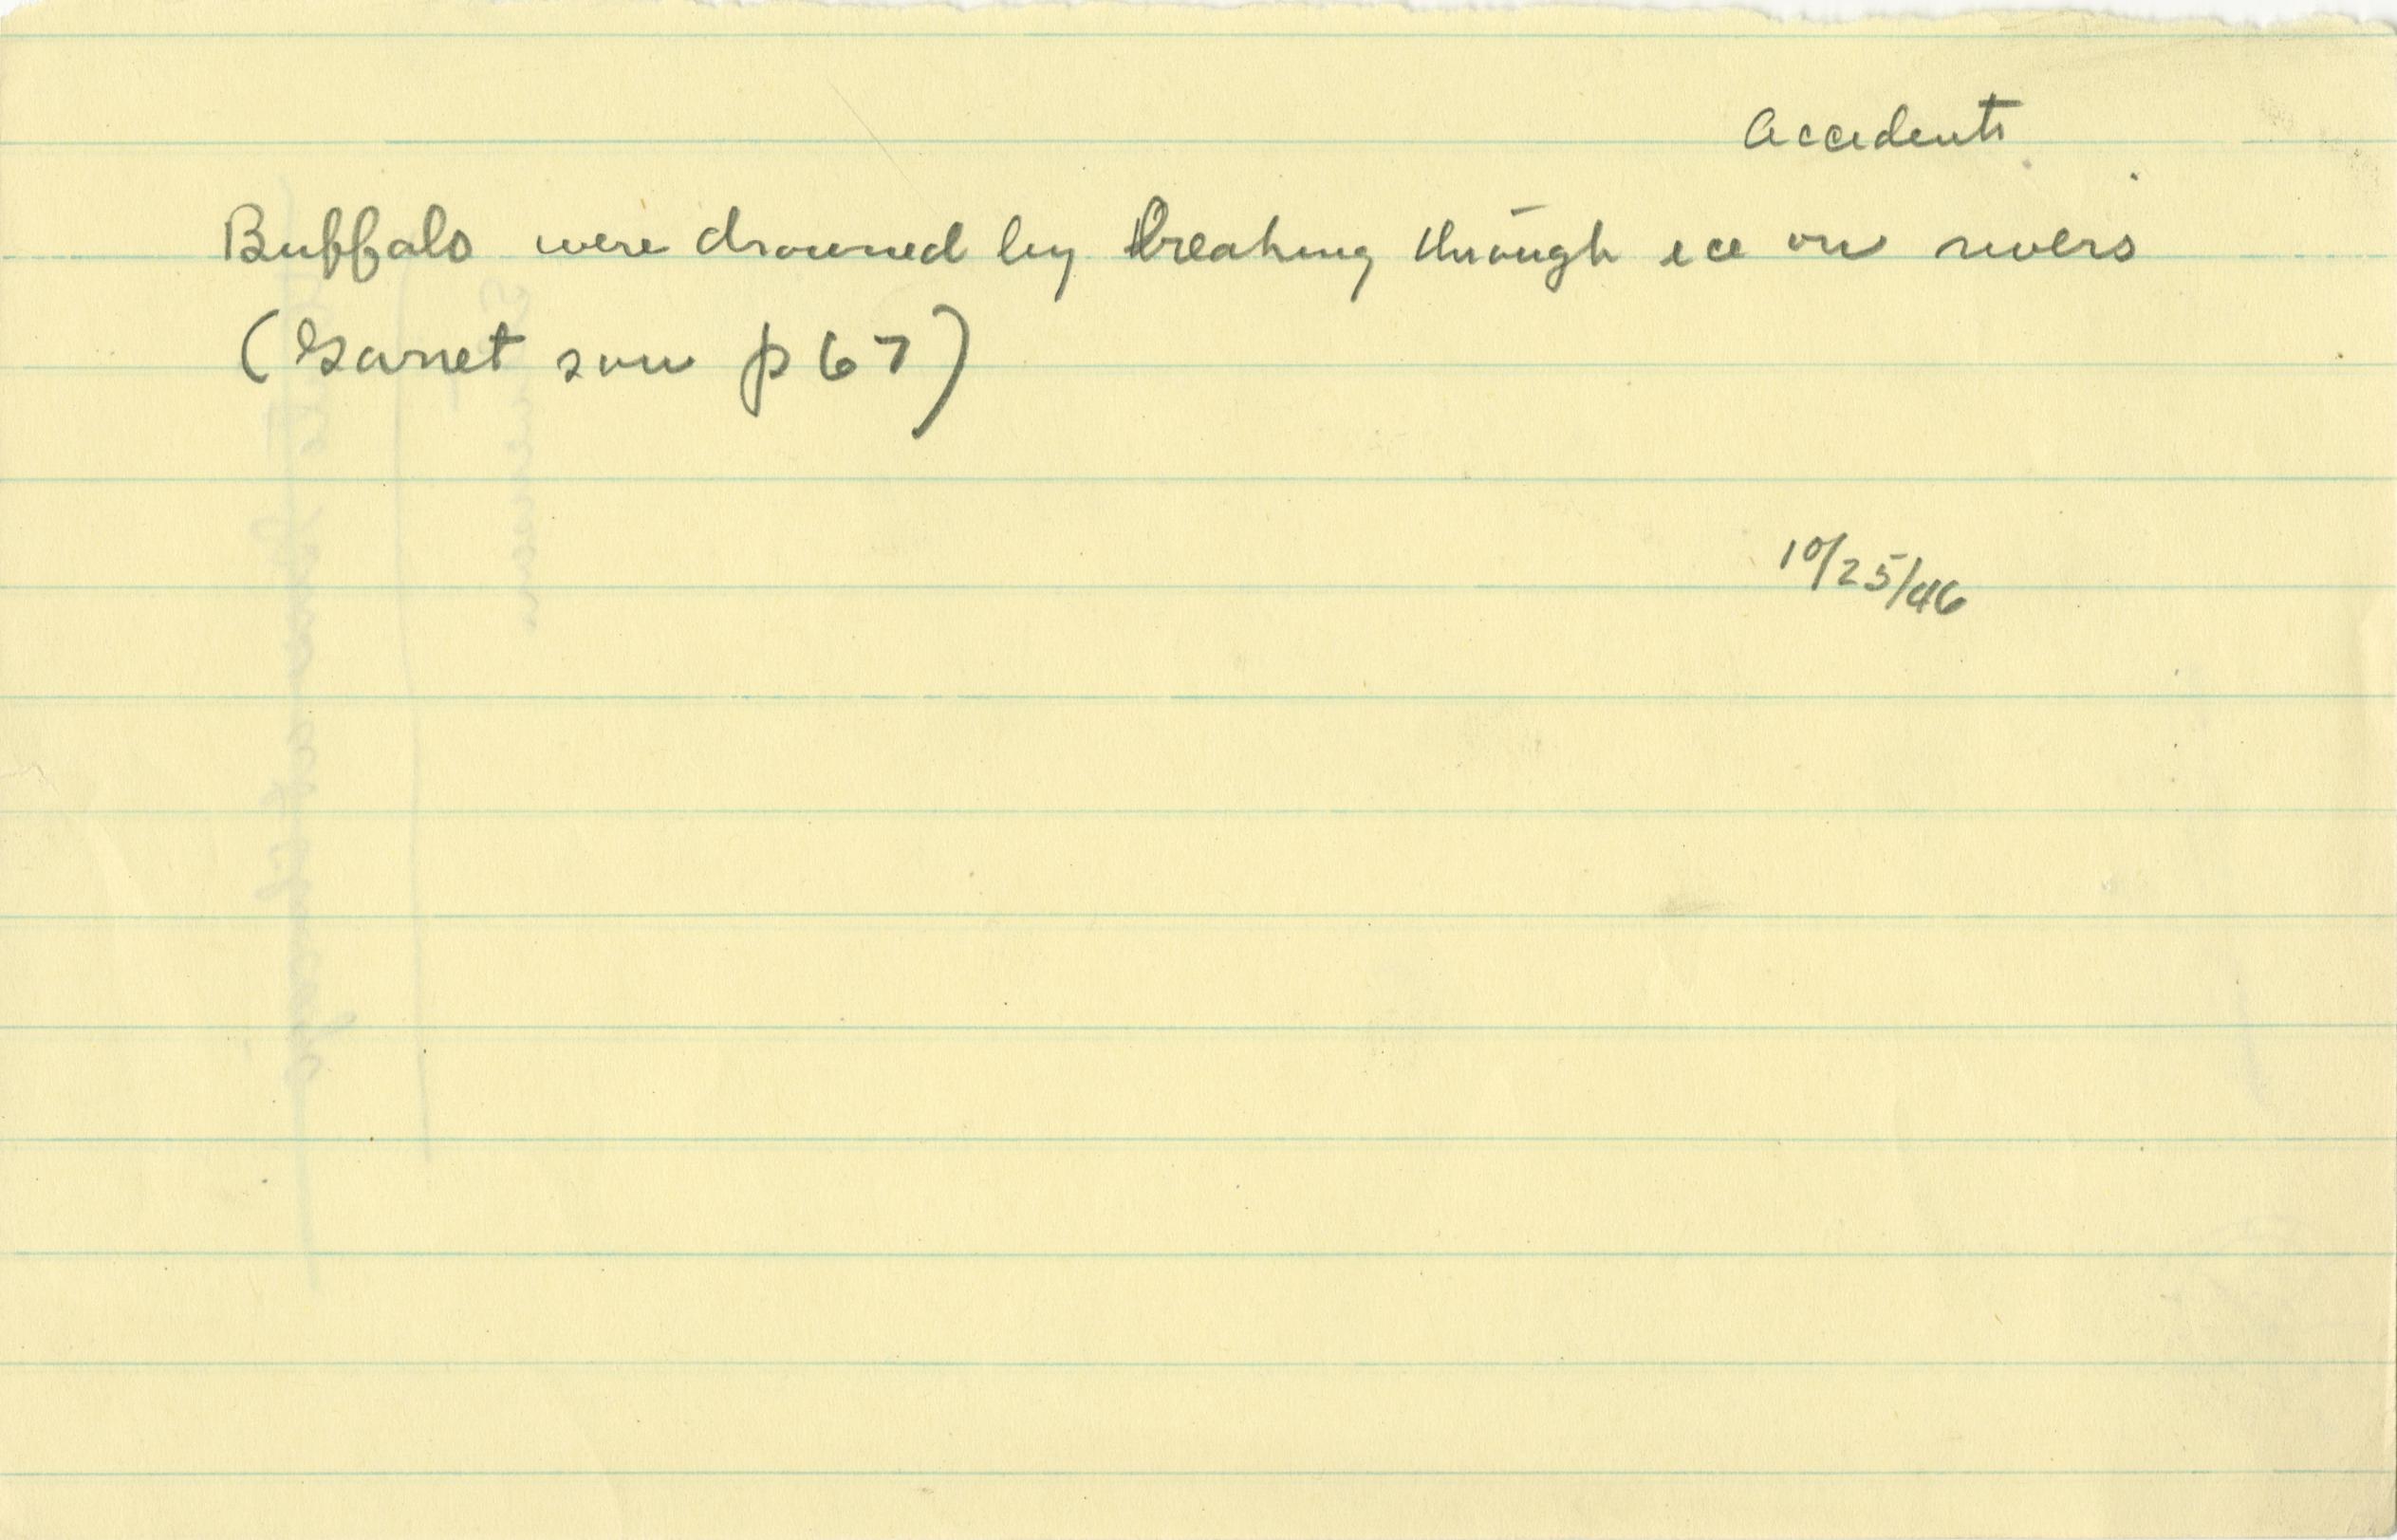 Accidents
Buffalo were drowned by breaking through ice on rivers
(Garnet son p 67)
10/25/46